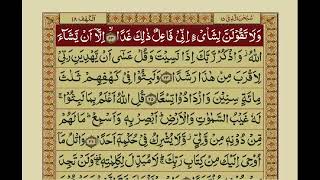 الكهف ١٨ سبحن الذي ١٥
وَلَا تَقُوْلَنَّ لِشَایْءٍ اِنِّیْ فَاعِلٌ ذٰلِكَ غَدًا ﴿٢٣﴾ اِلَّاۤ اَنْ یَّشَآءَ
اللّٰهُ وَاذْكُرْ رَّبَّكَ اِذَا نَسِیْتَ وَقُلْ عَسٰۤی اَنْ یَّهْدِیَنِ رَبِّیْ
لِاَقْرَبَ مِنْ هٰذَا رَشَدًا ﴿٢٤﴾ وَلَبِثُوْا فِیْ كَهْفِهِمْ ثَلٰثَ
مِائَةٍ سِنِیْنَ وَازْدَادُوْا تِسْعًا ﴿٢٥﴾ قُلِ اللّٰهُ اَعْلَمُ بِمَا لَبِثُوْا
لَهٗ غَیْبُ السَّمٰوٰتِ وَالْاَرْضِ اَبْصِرْ بِهٖ وَاَسْمِعْ مَا لَهُمْ
مِّنْ دُوْنِهٖ مِنْ وَّلِیٍّ وَّلَا یُشْرِكُ فِیْ حُكْمِهٖۤ اَحَدًا ﴿٢٦﴾ وَاتْلُ مَاۤ
اُوْحِیَ اِلَیْكَ مِنْ كِتَابِ رَبِّكَ لَا مُبَدِّلَ لِكَلِمٰتِهٖ وَلَنْ تَجِدَ